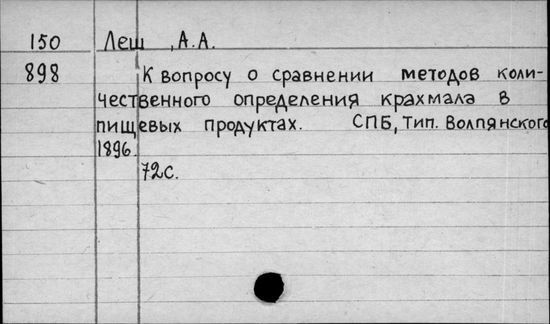 150 Леш , А.А.
898 К вопросу о сравнении методов коли-
чественного определения крахмала в
пищевых продуктах. СПБ, тип. Волпянского
1896.
72с.